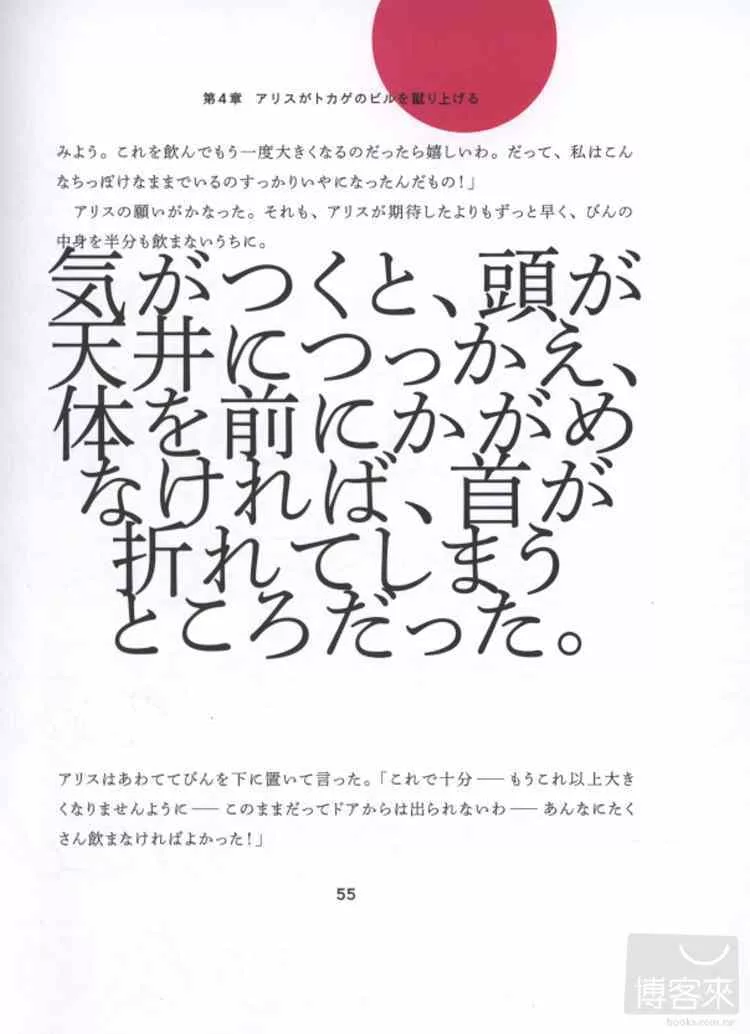 第4章 アリスがトカゲのビルを蹴り上げる
みよう。これを飲んでもう一度大きくなるのだったら嬉しいわ。だって、私はこん
なちっぽけなままでいるのすっかりいやになったんだもの！」
アリスの願いがかなった。それも、アリスが期待したよりもずっと早く、びんの
中身を半分も飲まないうちに。
気がつくと、頭が
天井につっかえ、
体を前にかがめ
なければ、首が
折れてしまう
ところだった。
アリスはあわててびんを下に置いて言った。「これで十分──もうこれ以上大き
くなりませんように──このままだってドアからは出られないわ──あんなにたく
さん飲まなければよかった！」
55
博客來
books.com.tw